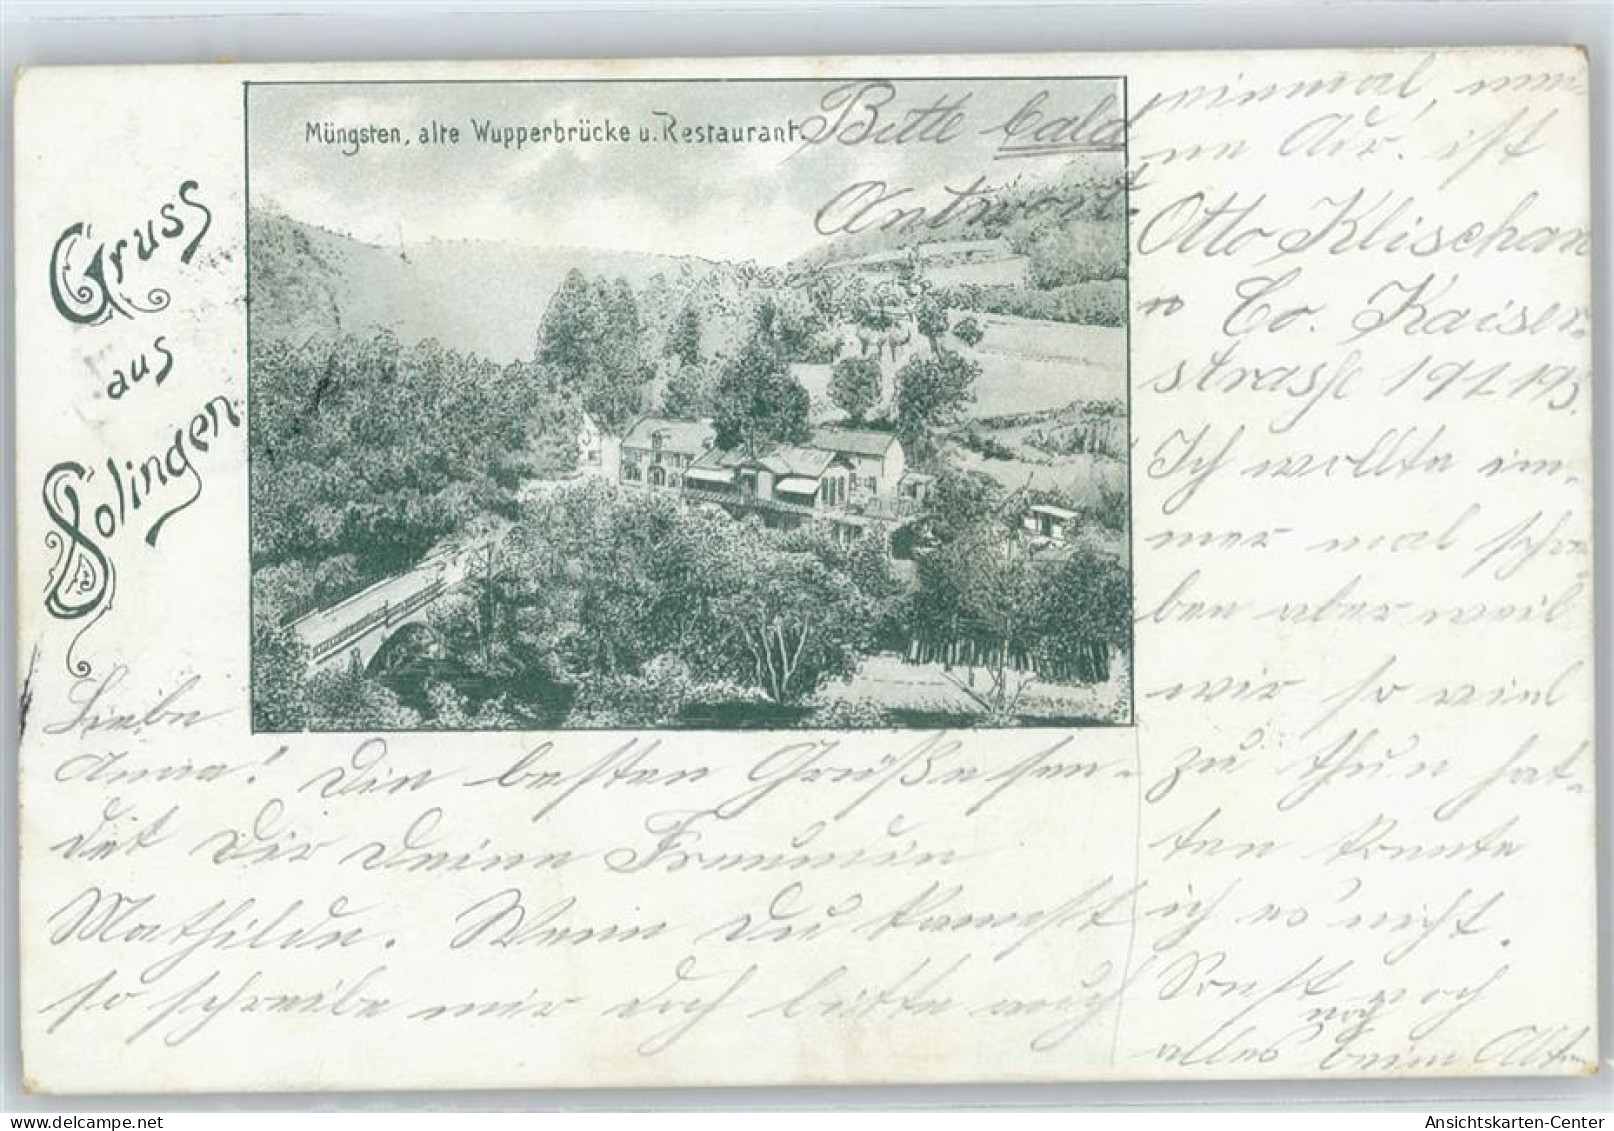 Gruss
aus
Solingen
Müngsten, alte Wupperbrücke u. Restaurant.
Bitte bald
Antwort.
Liebe
Anna! Die besten Grüße sen-
det Dir Deine Freundin
Mathilde. Wenn Du kannst
so schreibe mir doch bitte auch
einmal,
Adr. ist
Otto Klischan
Co. Kaiser-
strasse 191 193.
Ich wollte im-
mer mal schrei
ben aber weil
wir so viel
zu thun hat-
ten konnte
ich es nicht.
Sonst noch
alles beim Alten
Ansichtskarten-Center